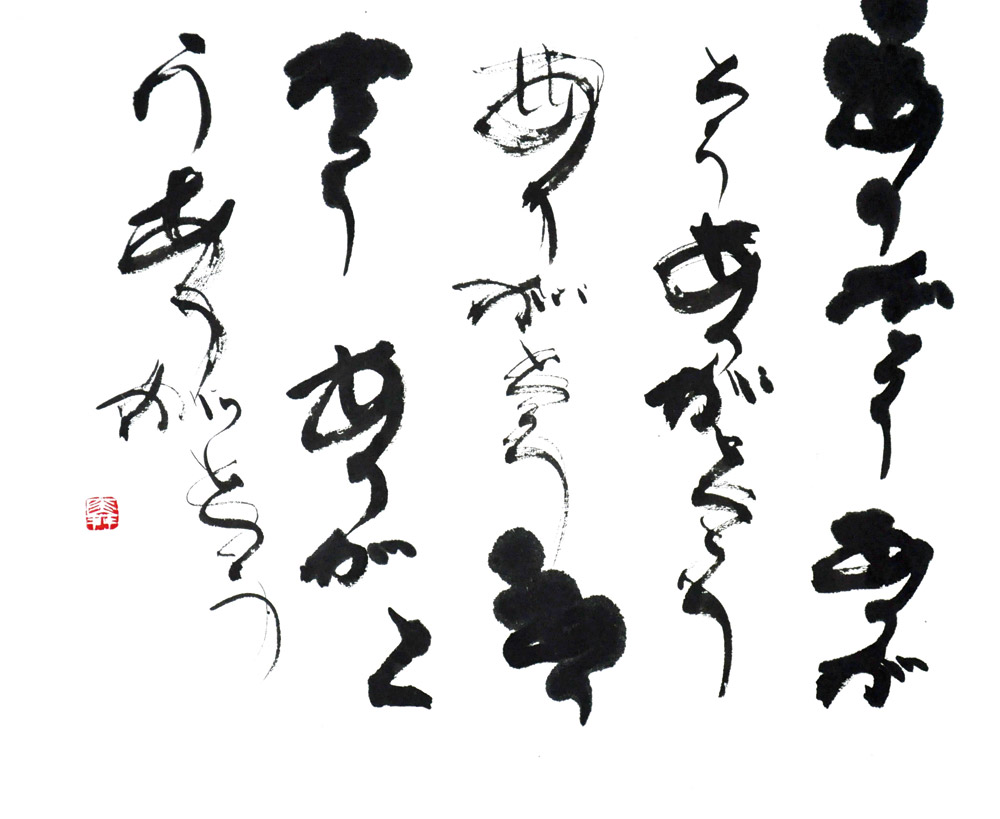 ありがとう ありが
とう ありがとう
ありがとう あり
がとう ありがと
う ありがとう